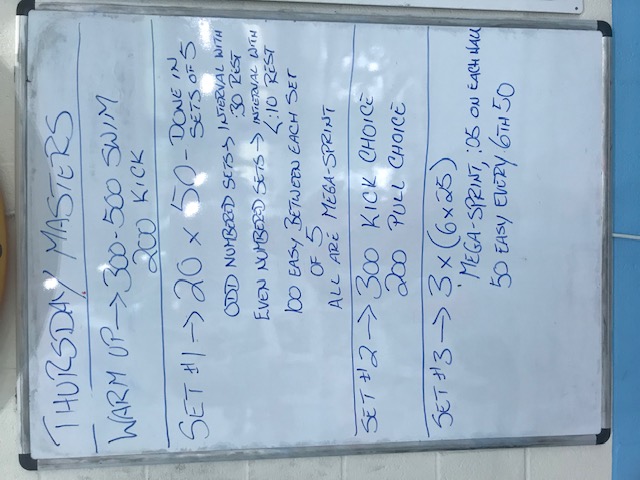 THURSDAY MASTERS
WARM UP → 300-500 SWIM
200 KICK
SET #1 → 20 x 50 - DONE IN
SETS OF 5
ODD NUMBERED SETS → INTERVAL WITH
:30 REST
EVEN NUMBERED SETS → INTERVAL WITH
<:10 REST
100 EASY BETWEEN EACH SET
OF 5
ALL ARE MEGA-SPRINT
SET #2 → 300 KICK CHOICE
200 PULL CHOICE
SET #3 → 3 x (6x25)
MEGA-SPRINT, :05 ON EACH WALL
50 EASY EVERY 6TH 50